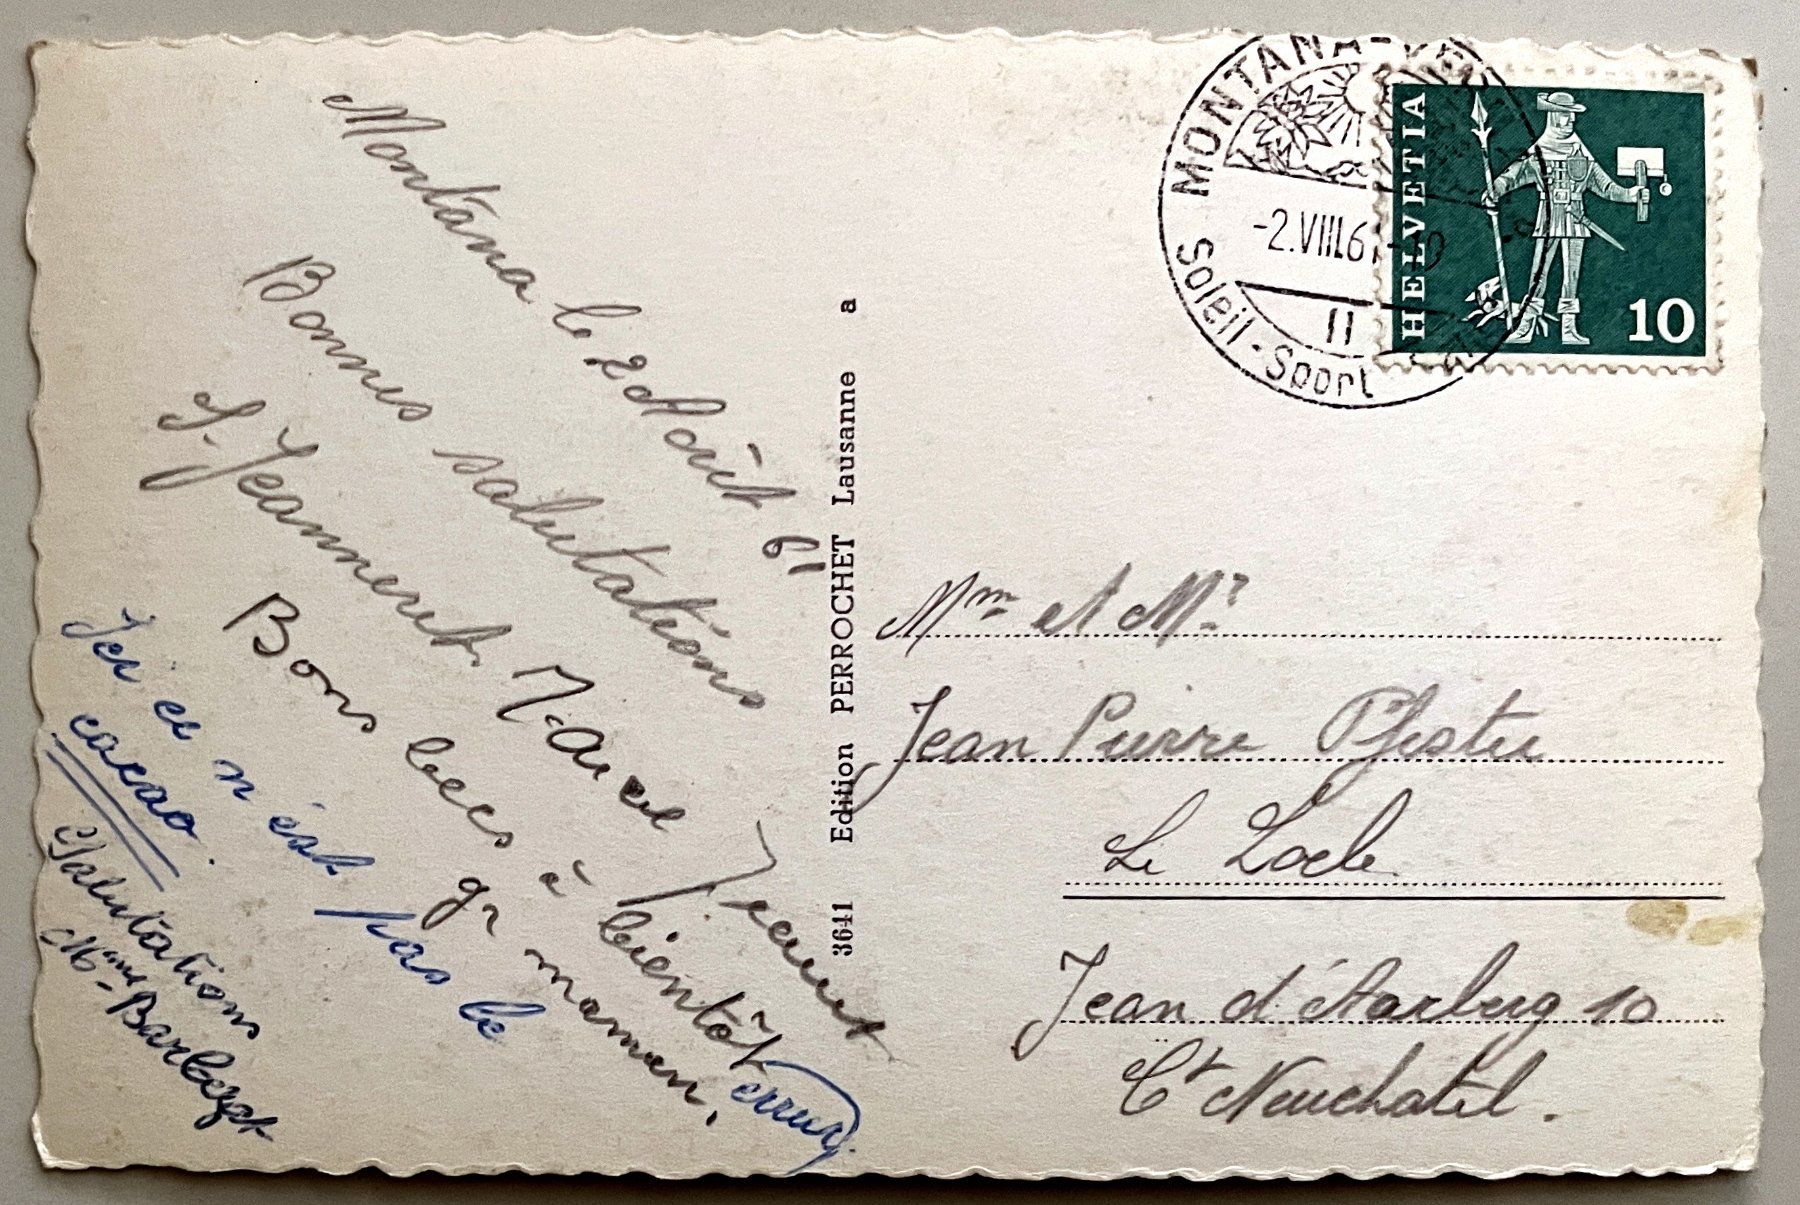 Montana le 2 Août 61
Bonnes salutations
S. Jeanneret
Bons becs à bientôt
gr maman,
Ici ce n'est pas le
cacao.
Salutations
Mme Barbezat
erreur
3641 Edition PERROCHET Lausanne a
MONTANA-VER
-2.VIII.61-10
II
Soleil-Sport
HELVETIA
10
Mme et Mr
Jean Pierre Pfister
Le Locle
Jean d'Aarberg 10
Ct Neuchatel.